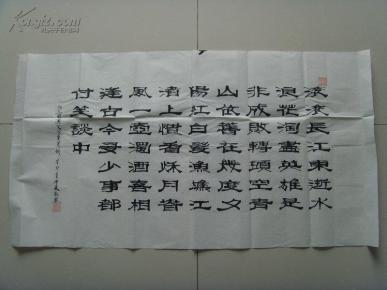 滚滚長江東逝水
浪花淘盡英雄是
非成敗轉頭空青
山依舊在幾度夕
陽紅白髮漁樵江
渚上慣看秋月春
風一壺濁酒喜相
逢古今多少事都
付笑談中